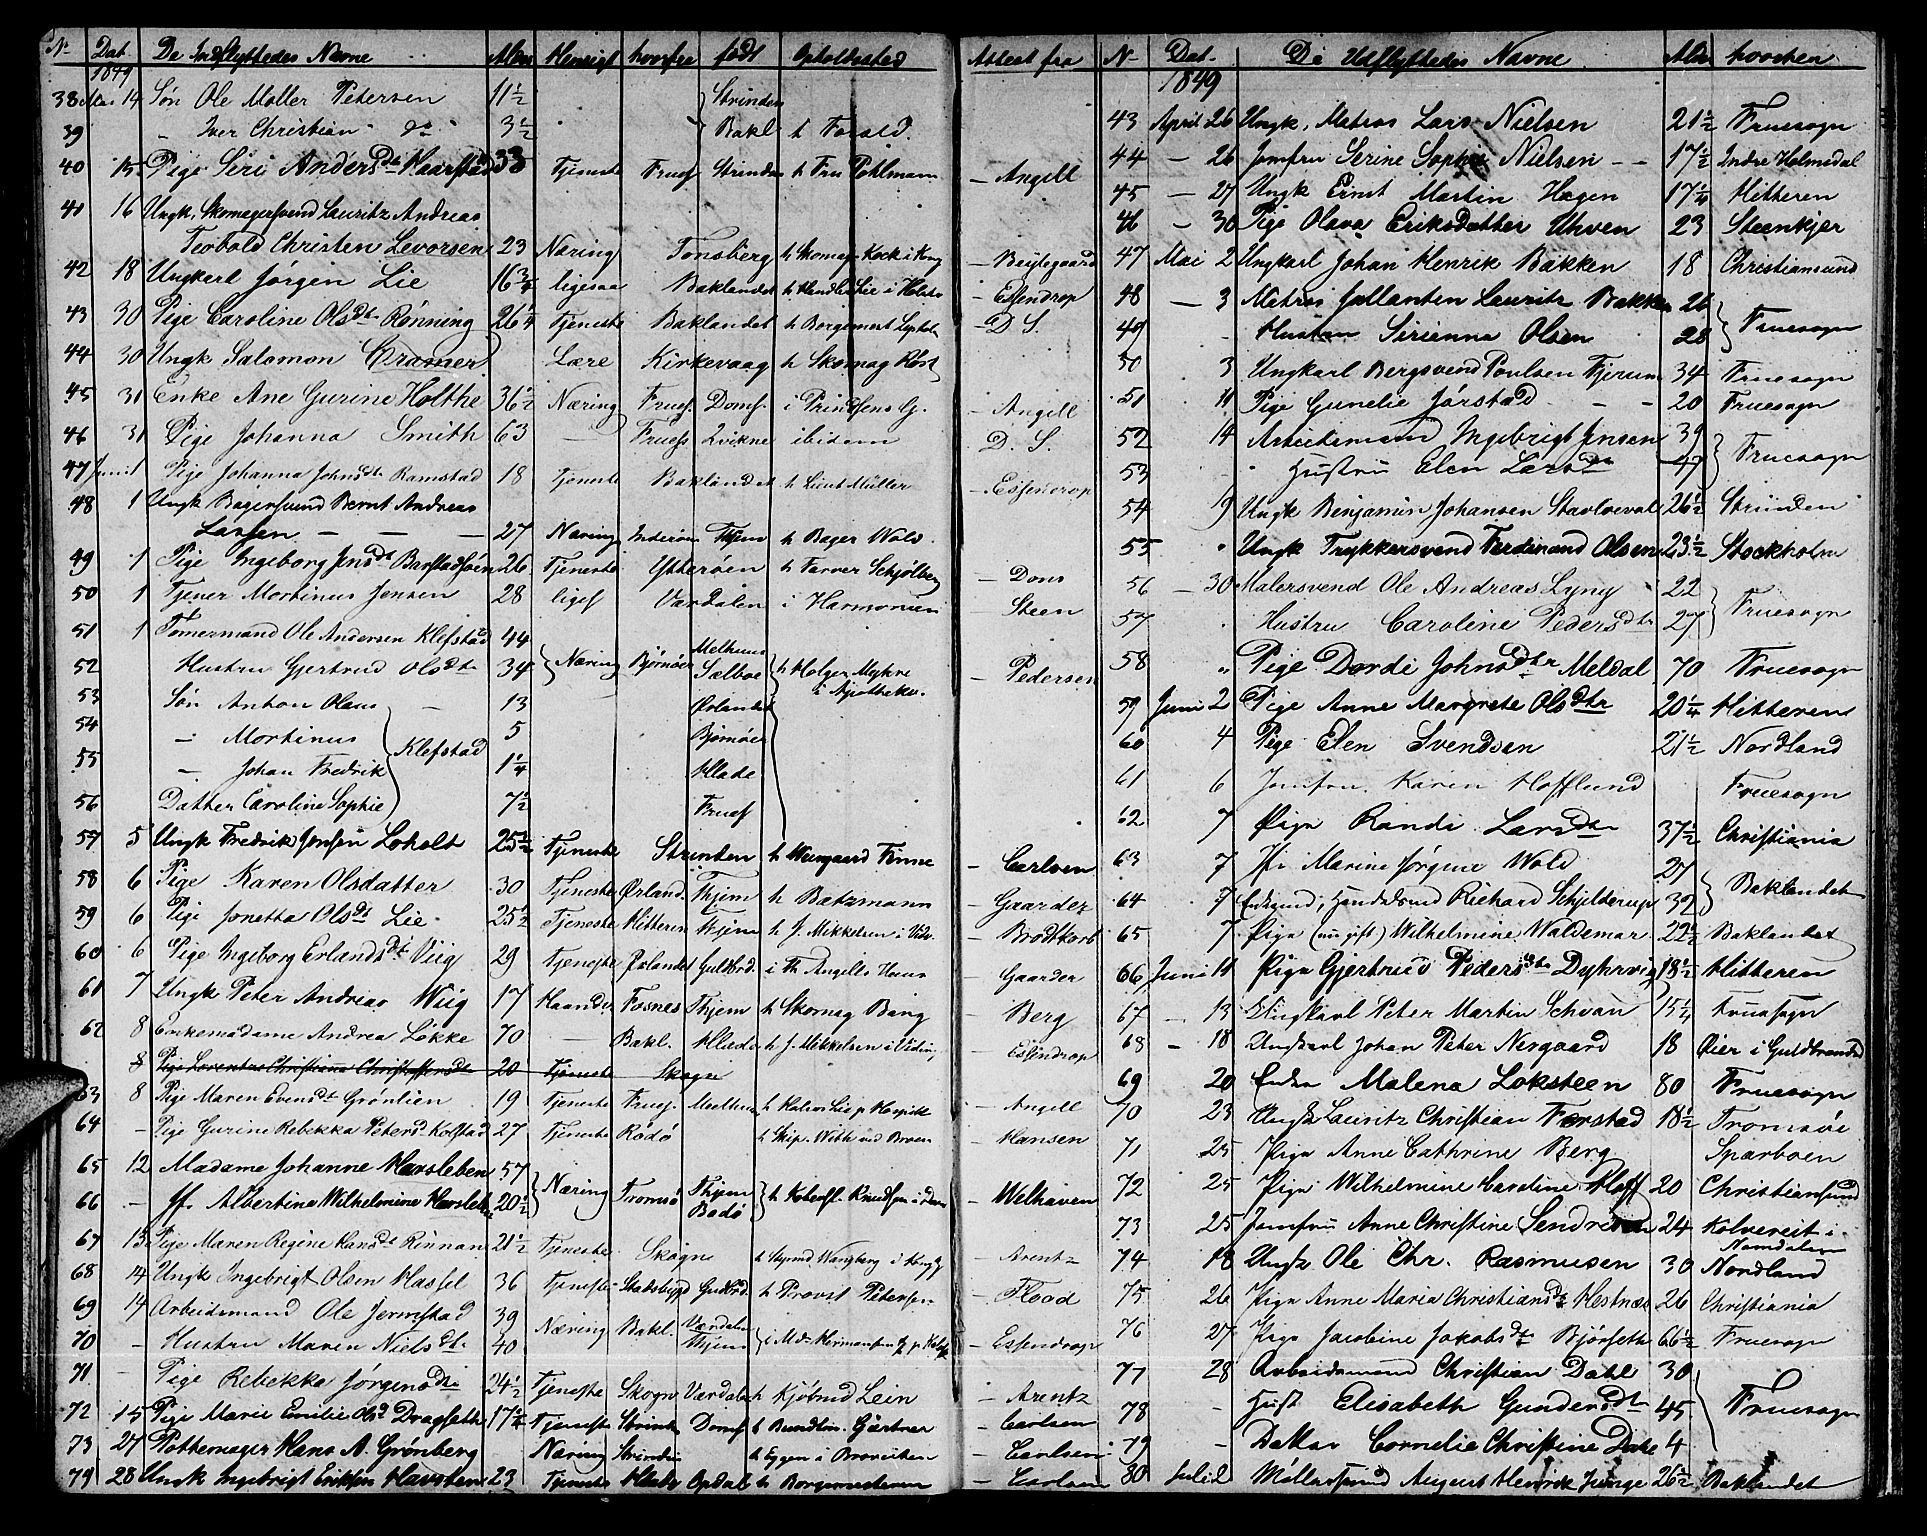 No Dat. De Indflyttedes Navne Alder Hensigt hvorfra født Opholdssted Attest fra
1849
38 Mai 14 Søn Ole Møller Petersen 11½ Strinden
39 " Iver Christian do 3½ Bakl. h Forald.
40 15 Pige Siri Andersdt Haarstad 33 Tjeneste Fruef Strinden h Fru Pohlmann – Angell
41 16 Ungk. Skomagersvend Lauritz Andreas
Teobald Christen Levorsen 23 Næring Tonsberg h Skomag. Kock i Kong – Beylegaard
42 18 Ungkarl Jørgen Lie 16¾ ligesaa Baklandet h Handler Lie i – Essendrop
43 30 Pige Caroline Olsdt Rønning 26¼ Tjeneste Baklandet h Borgemest – D. S.
44 30 Ungk Salomon Cramer Lære Kirkevaag h Skomag Røst
45 31 Enke Ane Gurine Holthe 36½ Næring Fruef. Domf. i Prindsens G. – Angell
46 31 Pige Johanna Smith 63 — Fruef Qvikne ibidem D. S.
47 Juni 1 Pige Johanna Johnsdt Ramstad 18 Tjeneste Baklandet h Lieut Müller – Essendrop
48 1 Ungk Bagersvend Bernt Andreas
Lassen — — — 27 Næring Inderøen Thjem h Bager Wold
49 1 Pige Ingeborg Jensdt 26 Tjeneste Ytterøen h Farver Schjølberg – Dons
50 1 Tjener Mortinus Jensen 28 ligef Værdalen i Harmonien Steen
51 1 Tømermand Ole Andersen Klefstad 44 Melhuus
52 Hustru Gjertrud Olsdt 34 Næring Bjørnøer Sælboe h Holger Myhre i Apotheket – Pedersen
53 Søn Anton Olaus – 13 Ørlandet
54 – Mortinus Klefstad 5 Bjørnøer
55 – Johan Fredrik 1¼ Hlade
56 Datter Caroline Sophie 7½ Fruef
57 5 Ungk Fredrik Jensen Loholt 25½ Tjeneste Strinden h Weregaard Finne – Carlsen
58 6 Pige Karen Olsdatter 30 Tjeneste Ørland. Thjem h Batzmann – Gaarder
59 6 Pige Jonetta Olsdt Lie 25½ Tjeneste Hitteren Thjem h J. Mikkelsen i Vids. – Brodtkorb
60 6 Pige Ingeborg Erlandsdt Viig 29 Tjeneste Ørlandet Guldbrd. i Th Angells Huus Gaarder
61 7 Ungk Peter Andreas Wiig 17 Haandv Fosnes Thjem h Skomag Bang – Berg
62 8 Enkemadame Andrea Løkke 70 — Bakl. Hlade h J. Mikkelsen i Viding – Essendrop
8 Pige Lorentze Christiana Christophersdt 20 Tjeneste Skogn
63 8 Pige Maren Evensdt Grønlien 19 Tjeneste Fruef. Meelhuus – Angell
64 – Pige Gurine Rebekka Petersd Kolstad 27 Tjeneste Rødø h Skip. With ved Broen – Hansen
65 12 Madame Johanne Harsleben 57 Næring Tromsø Thjem
66 – Jfr. Albertina Wilhelmine Harsleben 20½ Bodø – Welhaven
67 13 Pige Maren Regine Hansdt Rinnan 21½ Tjeneste Skogne h Styrmd Wangberg i Kongsg Arentz
68 14 Ungk Ingebrigt Olsen Hassel 36 Tjeneste Stadsbygd Guldbrd. h Provst Petersen – Flood
69 14 Arbeidsmand Ole Jernstad 39 Næring Bakl. Værdalen
70 – Hustru Maren Nielsdt 40 Thjem – Essendrop
71 – Pige Rebekka Jørgensdt 24½ Tjeneste Skogn Værdalen h Kjøbmd Lein – Arentz
72 15 Pige Marie Emilie Olsd Dragseth 17¼ Tjeneste Strind Domf h Brandtm. Gärtner – Carlsen
73 27 Pottemager Hans A. Grønberg Næring Strinden h Eggen i – Carlsen
74 28 Ungk Ingebrigt Eriksen Havsten 23 Tjeneste Hlade Opdal h Borgemesteren – Carlsen
N Dat. De Udflyttedes Navne Alder hvorhen
1849
43 April 26 Ungk. Matros Lars Nielsen 21½ Fruesogn
44 — 26 Jomfru Serine Sophie Nielsen – – 17½ Indre Holmedal
45 — 27 Ungk Ernst Martin Hagen 17¼ Hitteren
46 – 30 Pige Olava Eriksdatter Uhven 23 Steenkjer
47 Mai 2 Ungkarl Johan Henrik Bakken 18 Christiansund
48 — 3 Matros Lauritz Bakken 26 Fruesogn
49 Hustru Sirianna Olsen 28
50 3 Ungkarl Bergsvend Poulsen Fjerum 34 Fruesogn
51 11 Pige Gunelie Jørstad – – 20 Fruesogn
52 14 Arbeidsmand Ingebrigt Jensen 39 Fruesogn
53 " Hustru Elen Larsdt 47
54 19 Ungk Benjamin Johansen 26½ Strinden
55 " Ungk Trykkersvend Ferdinand Olsen 23½ Stockholm
56 — 30 Malersvend Ole Andreas Lyng 22 Fruesogn
57 " Hustru Caroline Pedersdt 27
58 " Pige Dordi Johnsdtr Meldal 70 Fruesogn
59 Juni 2 Pige Anne Margrete Olsdtr 20¼ Hitteren
60 4 Pige Elen Svendsen 21½ Nordland
61 6 Jomfru Karen Hofflund Fruesogn
62 7 Pige Randi Larsdtr 37½ Christiania
63 7 Jfr Marine Jørgine Wold 27 Baklandet
64 7 Handelsmd Richard Schjelderup 32
65 7 Pige (nu gift) Wilhelmine Waldemar 22½ Baklandet
66 Juni 11 Pige Gjertrud Pedersdtr Dyhrvig 18½ Hitteren
67 – 13 Ungkarl Peter Martin Schvan 15¼ Fruesogn
68 – 18 Ungkarl Johan Peter Nergaard 18 Øier i Guldbrandsd
69 20 Enke Malena Loksteen 80 Fruesogn
70 23 Ungk Lauritz Christian Færstad 18½ Tromsøe
71 25 Pige Anne Cathrine Berg Sparboen
72 25 Pige Wilhelmine Caroline Hoff 20 Christiansund
73 25 Jomfru Anne Christine 24 Kolvereit i Namdalen
74 18 Ungk Ole Chr. Rasmusen 30 Nordland
75 26 Pige Anne Maria Christiansdt Hestnæs 26 Christiania
76 27 Pige Jacobine Jakobsdt Bjørseth 66½ Fruesogn
77 28 Arbeidsmand Christian Dahl 30 Fruesogn
78 – Hust Elisabeth Gundersdt 45
79 – Datter Cornelie Christine Dahl 4
80 Juli 2 Møllersvend August Henrik Junge 26½ Baklandet